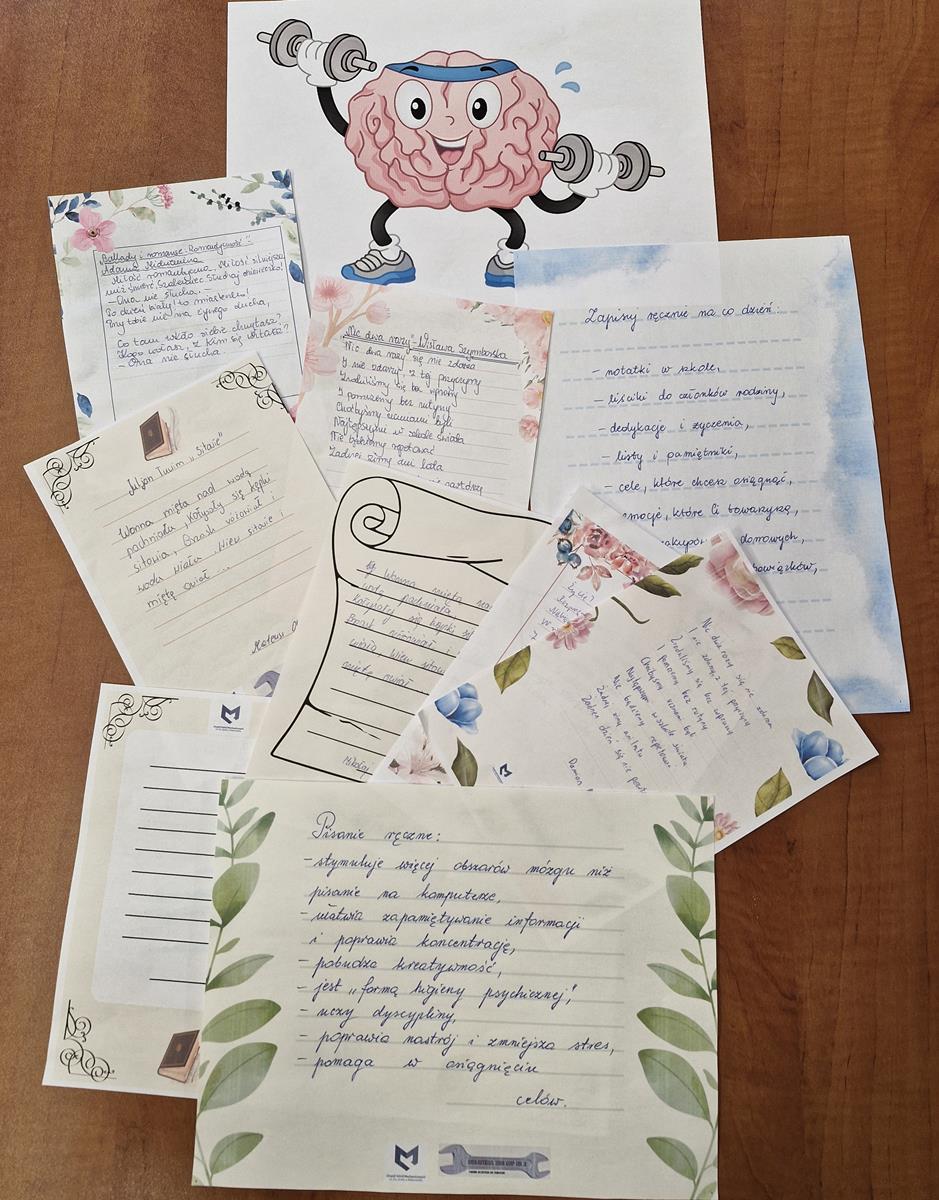 Ballady i romanse. Romantyczność"
Adama Mickiewicza
Miłość romantyczna, Miłość silniejsza
niż śmierć, Szaleniec. Słuchaj dzieweczko!
- Ona nie słucha. -
To dzień biały! to miasteczko!
Przy tobie nie ma żywego ducha,
Co tam wkoło siebie chwytasz?
Kogo wołasz, z kim się witasz?
- Ona nie słucha.
„Nic dwa razy" - Wisława Szymborska
Nic dwa razy się nie zdarza
I nie zdarzy. Z tej przyczyny
Zrodziliśmy się bez wprawy
I pomrzemy bez rutyny
Choćbyśmy uczniami byli
Najtępszymi w szkole świata
Nie będziemy repetować
Żadnej zimy ani lata
Zapisuj ręcznie na co dzień:
- notatki w szkole,
- liściki do członków rodziny,
- dedykacje i życzenia,
- listy i pamiętniki,
- cele, które chcesz osiągnąć,
emocje, które Ci towarzyszą,
zakupów domowych,
obowiązków,
Julian Tuwim „Sitowie"
Wonna mięta nad wodą
pachniała, kołysały się kępki
sitowia, Brzask różowiał i
woda wiała. Wiew sitowie i
miętę owiał ...
Mateusz
Wonna mięta nad
wodą pachniała
Kołysały się kępki
Brzask różowiał i
wiała wiew sitow
miętę owiał
Mikołaj
Nic dwa razy się nie zdarza
I nie zdarzy, z tej przyczyny
Zrodziliśmy się bez wprawy
I pomrzemy bez rutyny
Choćbyśmy uczniami byli
Najtępszymi w szkole świata
Nie będziemy repetować
Żadnej zimy ani lata
Żaden dzień się nie
Damian
Pisanie ręczne:
- stymuluje więcej obszarów mózgu niż
pisanie na komputerze,
- ułatwia zapamiętywanie informacji
i poprawia koncentrację,
- pobudza kreatywność,
- jest „formą higieny psychicznej",
- uczy dyscypliny,
- poprawia nastrój i zmniejsza stres,
- pomaga w osiągnięciu
celów.